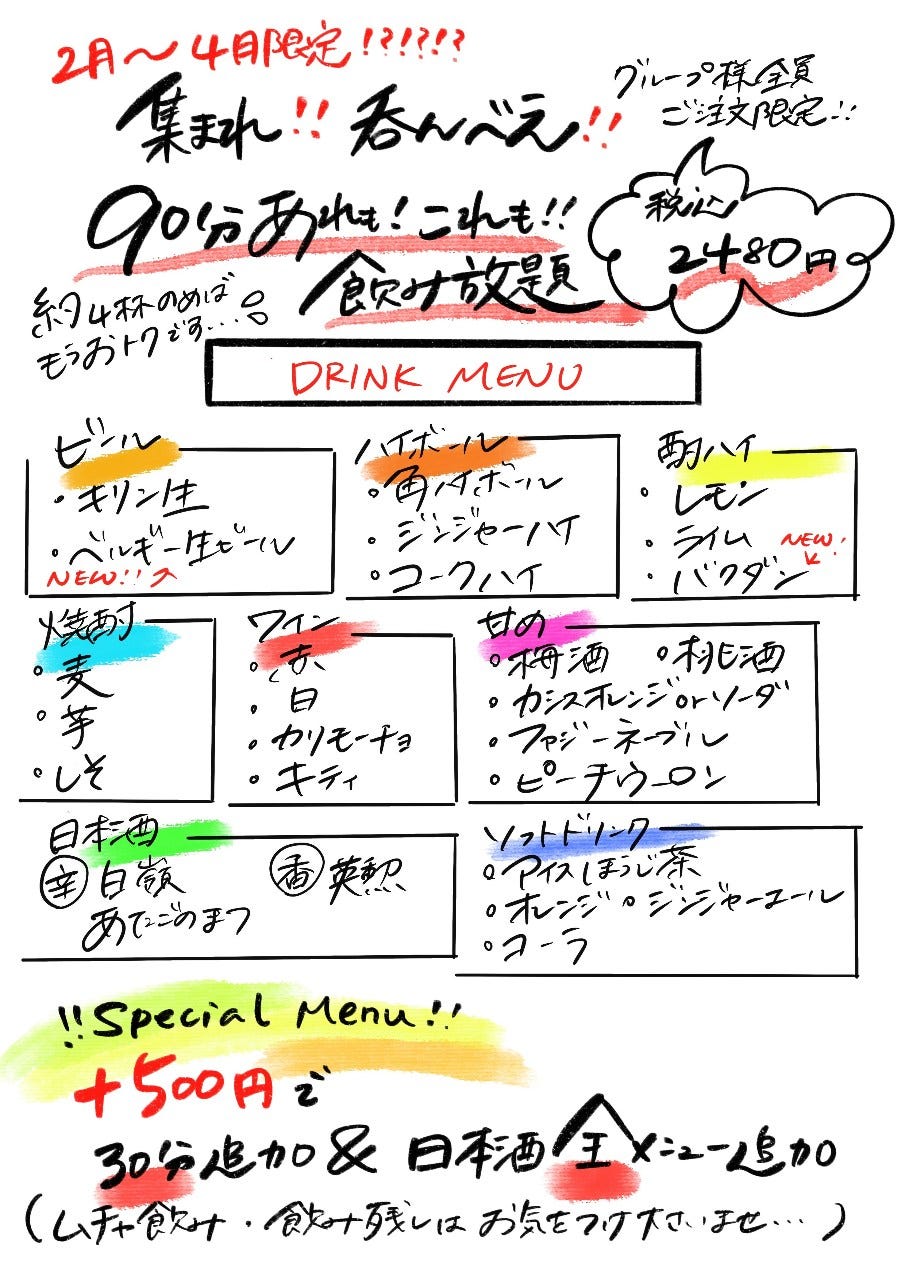 2月〜4月限定!?!?!?
集まれ!! 呑んべえ!!
グループ様全員
ご注文限定!!
90分あれも!これも!!
飲み放題
税込
2480円
約4杯のめば
もうおトクです...!
DRINK MENU
ビール
・キリン生
・ベルギー生ビール
NEW!!
ハイボール
・角ハイボール
・ジンジャーハイ
・コークハイ
酎ハイ
・レモン
・ライム
NEW!
・バクダン
焼酎
・麦
・芋
・しそ
ワイン
・赤
・白
・カリモーチョ
・キティ
甘め
・梅酒 ・桃酒
・カシスオレンジorソーダ
・ファジーネーブル
・ピーチウーロン
日本酒
辛 白嶺 香 英勲
あたごのまつ
ソフトドリンク
・アイスほうじ茶
・オレンジ ・ジンジャーエール
・コーラ
!!Special Menu!!
+500円で
30分追加&日本酒全メニュー追加
(ムチャ飲み・飲み残しはお気をつけ下さいませ...)